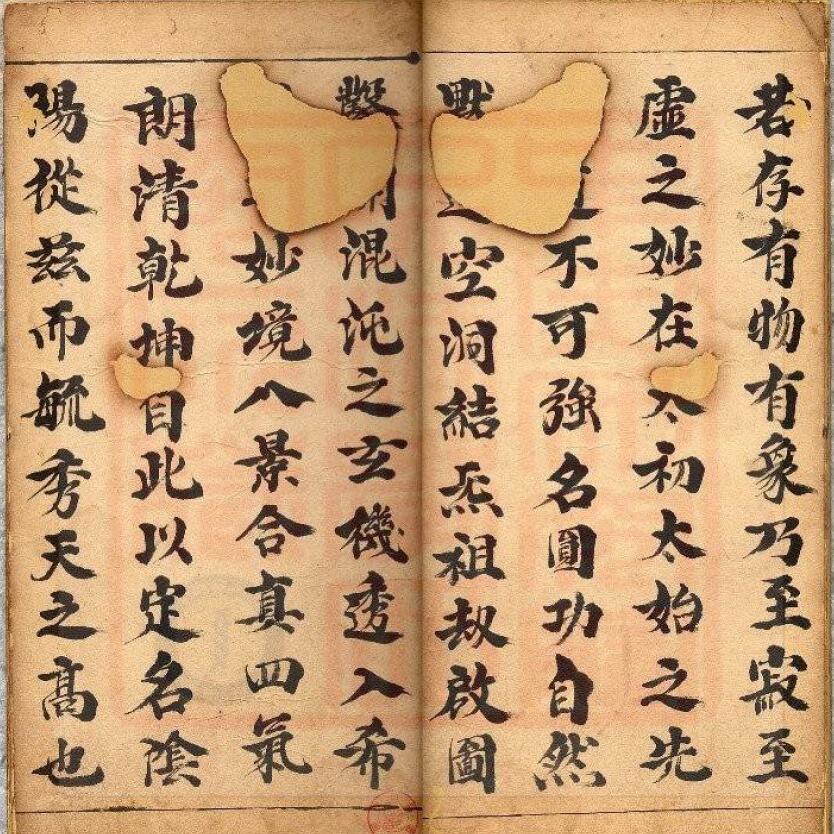 若存有物有象乃至寂至
虛之妙在太初太始之先
不可強名圓功自然
空洞結炁祖劫啟圖
混沌之玄機透入希
妙境八景合真四氣
朗清乾坤自此以定名陰
陽從茲而毓秀天之髙也